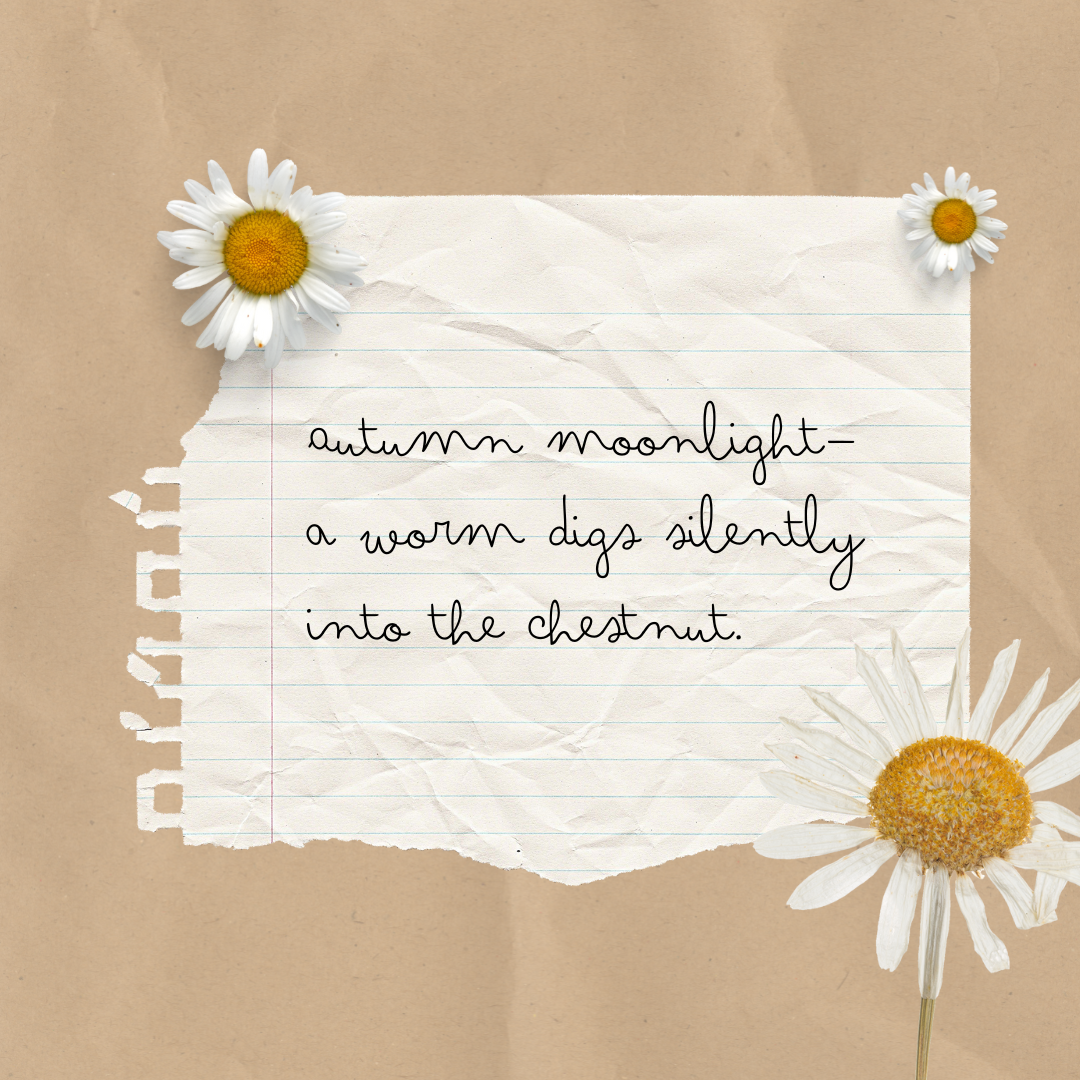 autumn moonlight—
a worm digs silently
into the chestnut.